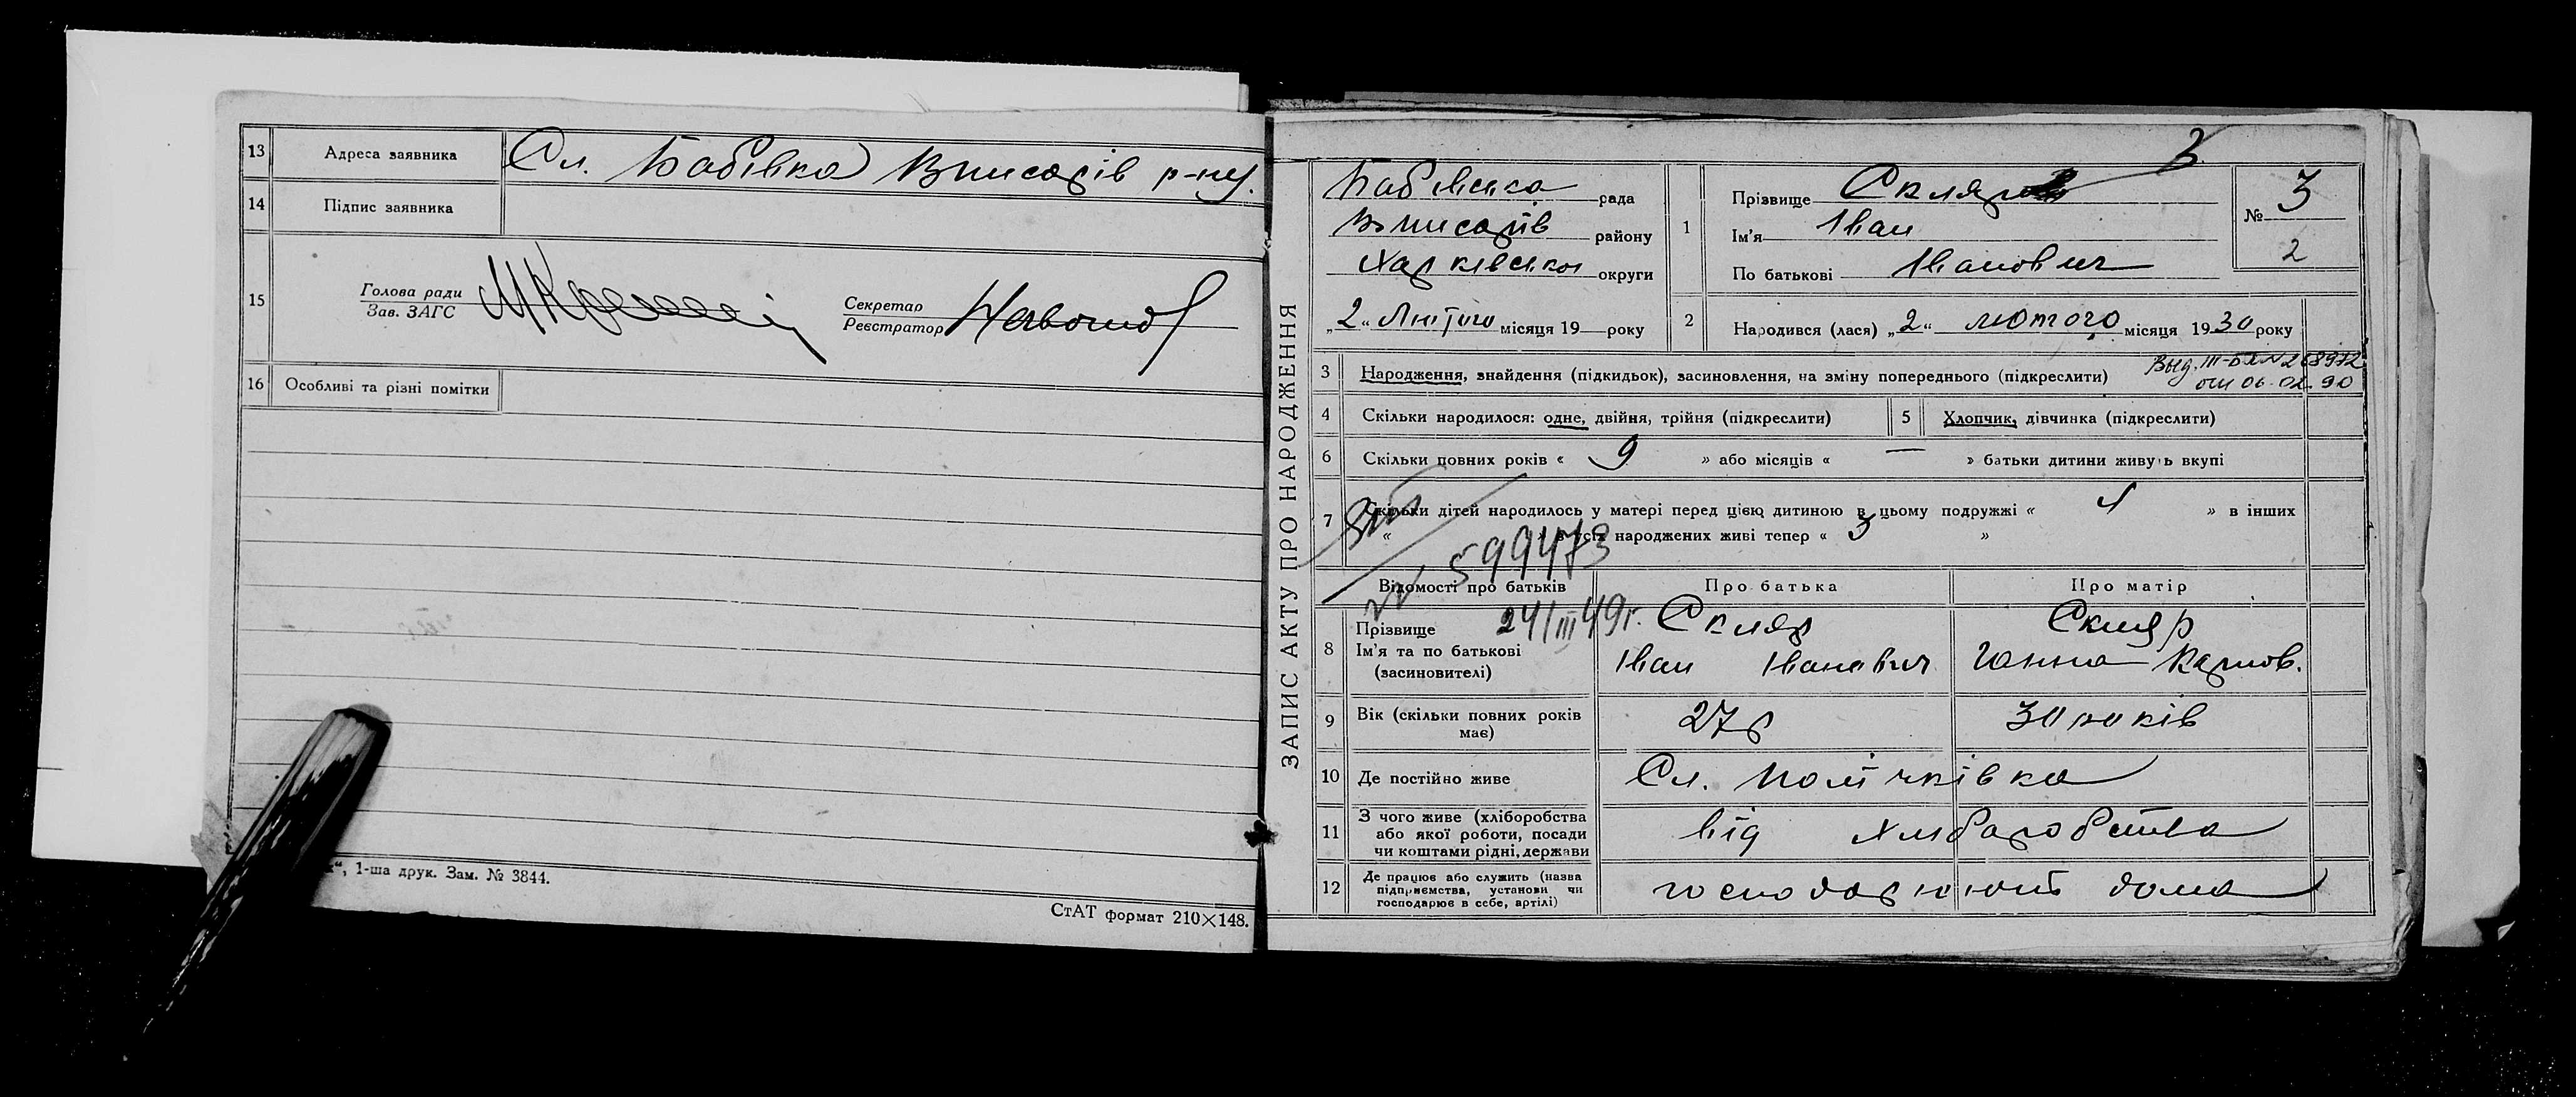 13 Адреса заявника Сл. Бабівка В писарів р-ну.
14 Підпис заявника
15 Голова ради
Зав. ЗАГС
Секретар
Реєстратор
16 Особливі та різні помітки
", 1-ша друк. Зам. № 3844.
СтАТ формат 210×148.
ЗАПИС АКТУ ПРО НАРОДЖЕННЯ
3
рада
В писарів району
Харківської округи
„2" Лютого місяця 19 року
1 Прізвище Скляр
Ім'я Іван
По батькові Іванович
№ 3
2
2 Народився (лася) „2" лютого місяця 1930 року
3 Народження, знайдення (підкидьок), засиновлення, на зміну попереднього (підкреслити)
Выд. III-БЛ № 268972
от 06.02.90
4 Скільки народилося: одне, двійня, трійня (підкреслити)
5 Хлопчик, дівчинка (підкреслити)
6 Скільки повних років « 9 » або місяців « — » батьки дитини живуть вкупі
7 Скільки дітей народилось у матері перед цією дитиною в цьому подружжі « 4 » в інших
« з усіх народжених живі тепер « 3 »
599473
24/III 49г.
Відомості про батьків Про батька Про матір
8 Прізвище Скляр Скляр
Ім'я та по батькові Іван Іванович Ганна Карпов.
(засновителі)
9 Вік (скільки повних років має) 27 р 30 років
10 Де постійно живе Сл.
11 З чого живе (хліборобства
або якої роботи, посади
чи коштами рідні, держави
від хліборобства
12 Де працює або служить (назва
підприємства, установи чи
господарює в себе, артілі)
господарюють дома